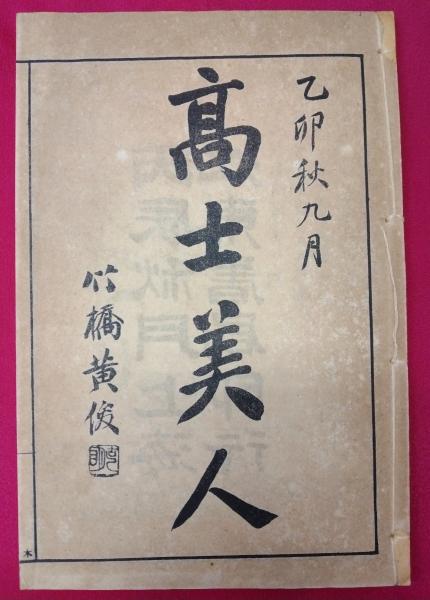 乙卯秋九月
髙士美人
竹橋黃俊
木